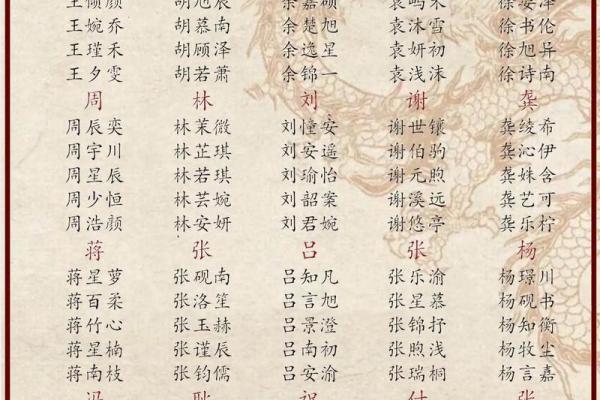 王婉乔 胡慕南 余楚旭 袁沐雪 徐书伦
王瑾禾 胡顾泽 余逸星 袁妍初 徐旭异
王夕雯 胡若萧 余锦一 袁浅沫 徐诗南
周 林 刘 谢 龚
周辰奕 林茉微 刘憧安 谢世镶 龚绫希
周宇川 林芷琪 刘安遥 谢伯驹 龚沁伊
周星辰 林若琪 刘瑜怡 谢元煦 龚姝含
周少恒 林芸婉 刘韶案 谢溪远 龚艺可
周浩颜 林安妍 刘君婉 谢悠亭 龚乐柠
蒋 张 吕 张 杨
蒋星萝 张砚南 吕知凡 张乐渝 杨璟川
蒋百柔 张洛笙 吕言旭 张星慕 杨砚书
蒋竹心 张玉赫 吕景澄 张锦抒 杨知衡
蒋星楠 张谨辰 吕南初 张煦浅 杨牧尘
蒋南枝 张钧儒 吕安渝 张瑞桐 杨言嘉